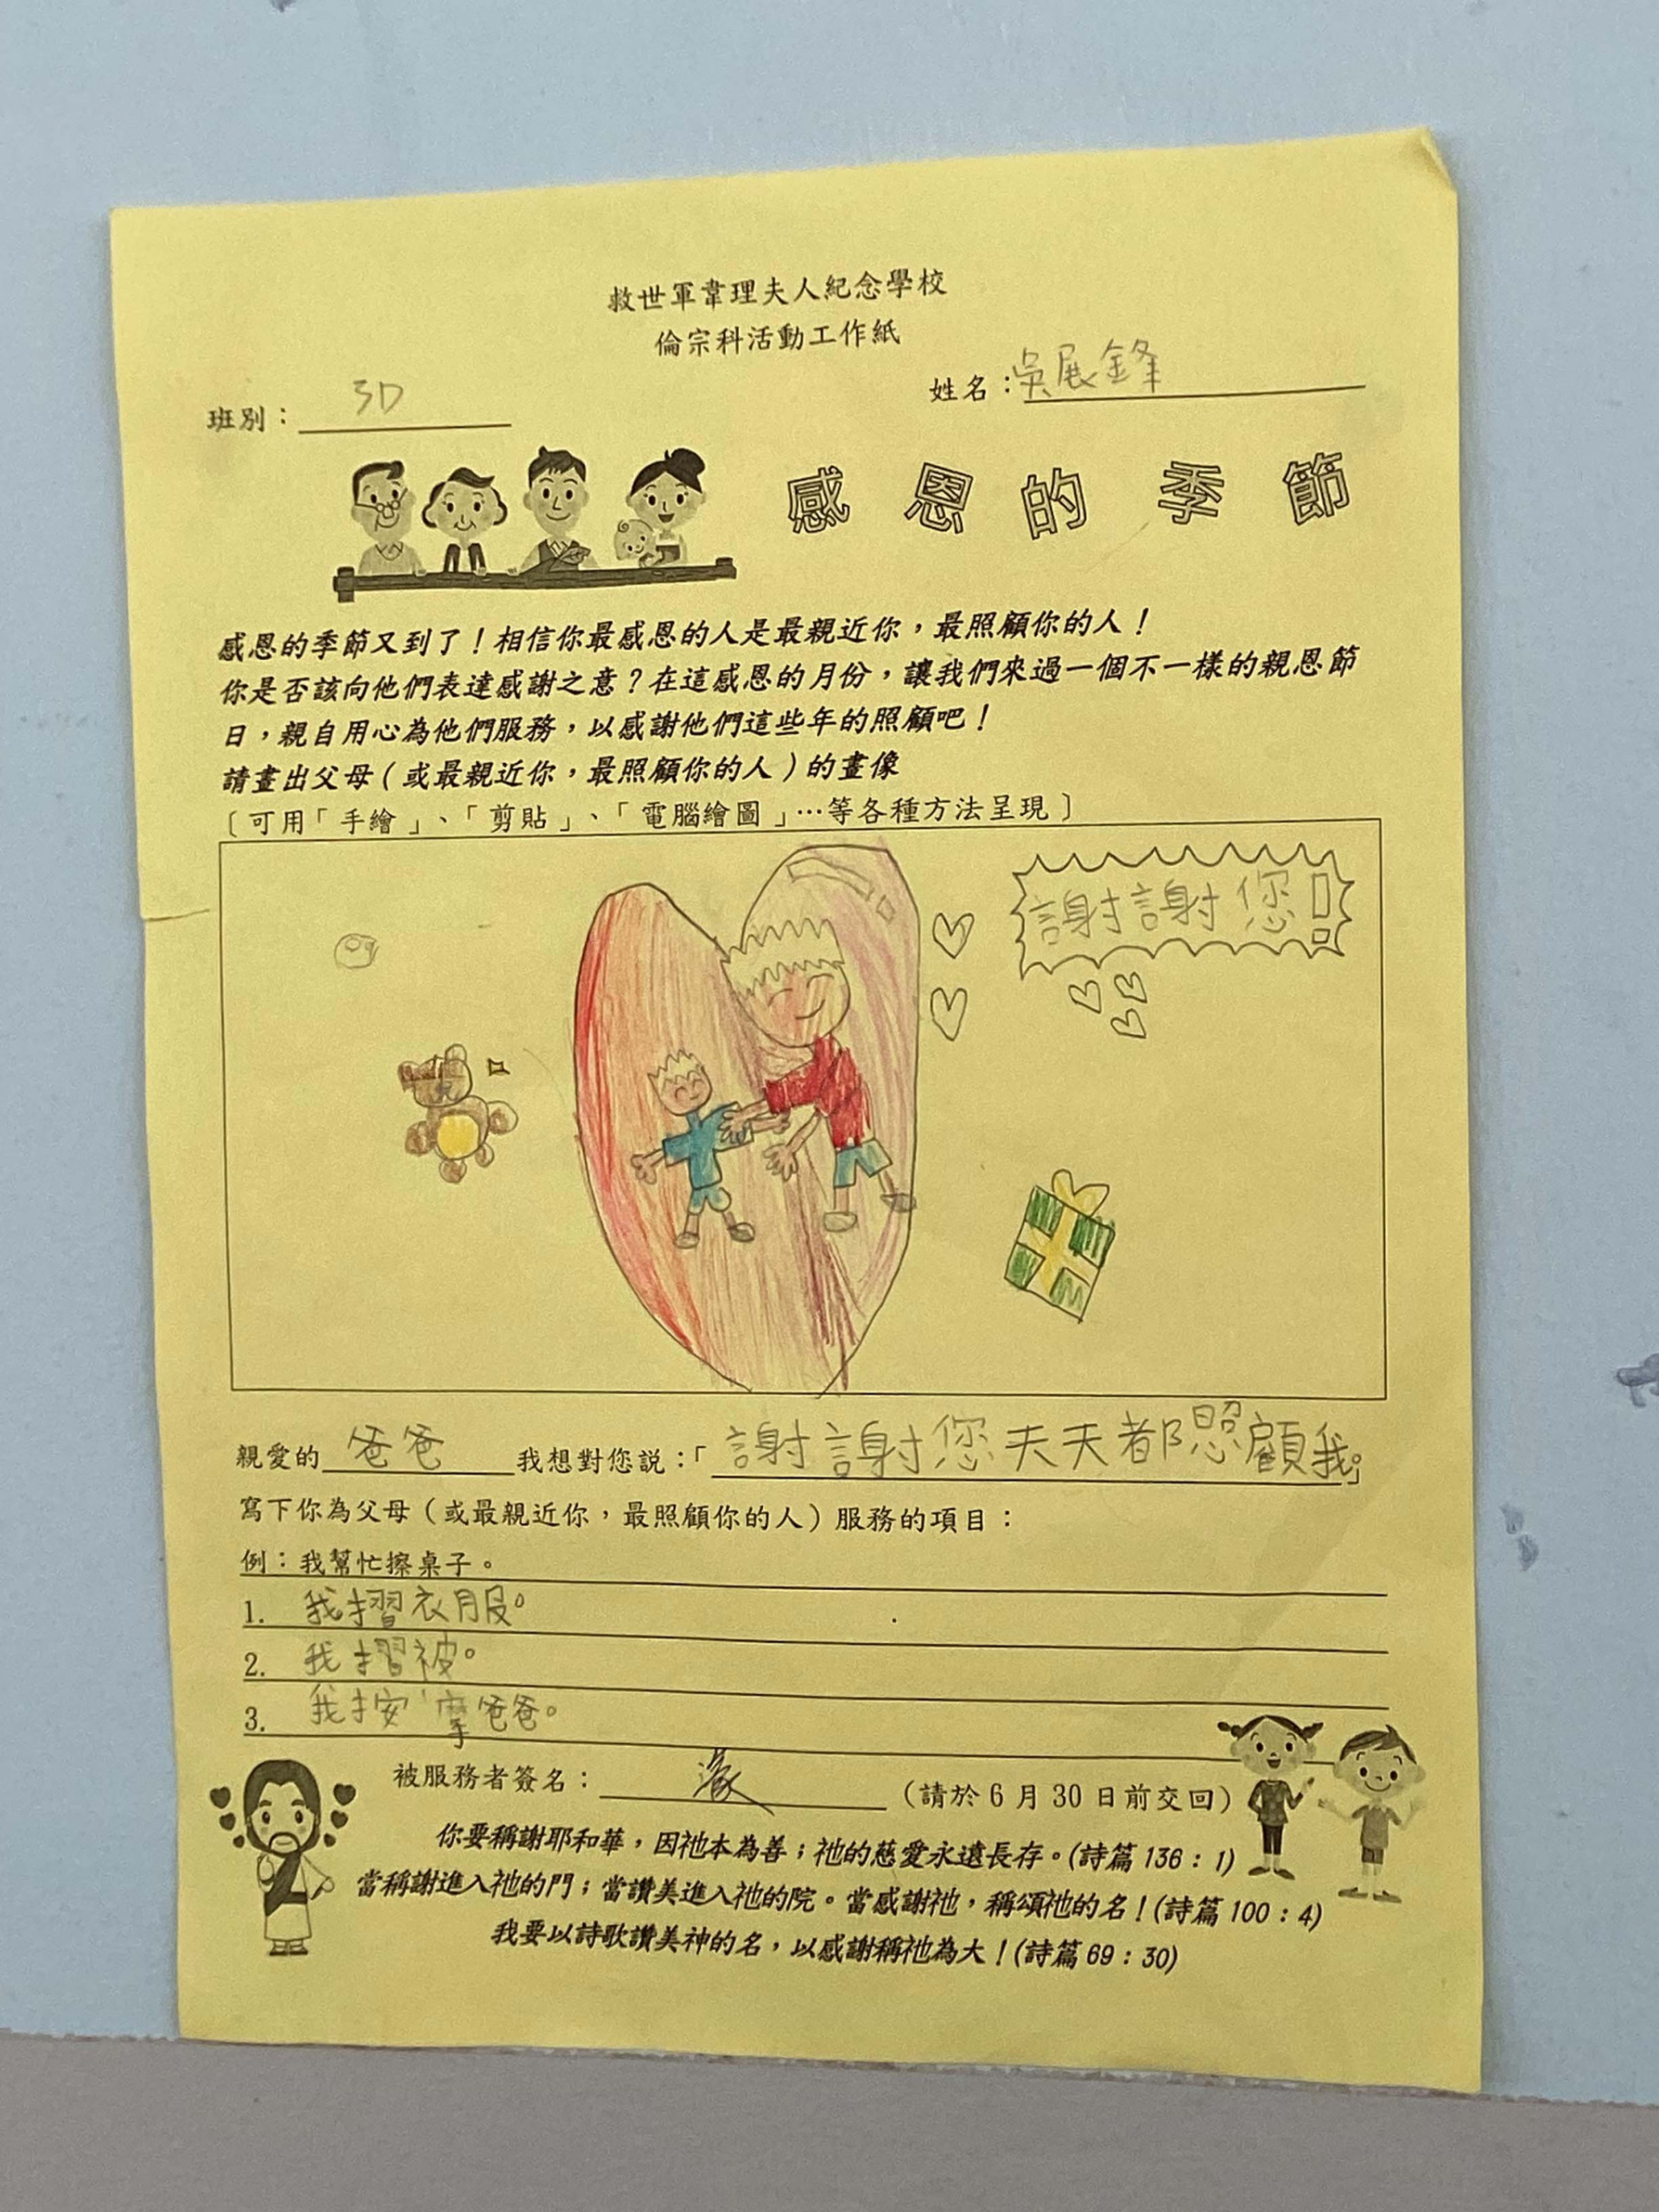 救世軍韋理夫人紀念學校
倫宗科活動工作紙
班別：3D 姓名：吳展鋒
感恩的季節
感恩的季節又到了！相信你最感恩的人是最親近你，最照顧你的人！
你是否該向他們表達感謝之意？在這感恩的月份，讓我們來過一個不一樣的親恩節
日，親自用心為他們服務，以感謝他們這些年的照顧吧！
請畫出父母（或最親近你，最照顧你的人）的畫像
〔可用「手繪」、「剪貼」、「電腦繪圖」…等各種方法呈現〕
謝謝您！
親愛的爸爸我想對您說：「謝謝您天天都照顧我。」
寫下你為父母（或最親近你，最照顧你的人）服務的項目：
例：我幫忙擦桌子。
1. 我摺衣服。
2. 我摺被。
3. 我按摩爸爸。
被服務者簽名： （請於6月30日前交回）
你要稱謝耶和華，因祂本為善；祂的慈愛永遠長存。(詩篇136：1)
當稱謝進入祂的門；當讚美進入祂的院。當感謝祂，稱頌祂的名！(詩篇100：4)
我要以詩歌讚美神的名，以感謝稱祂為大！(詩篇69：30)